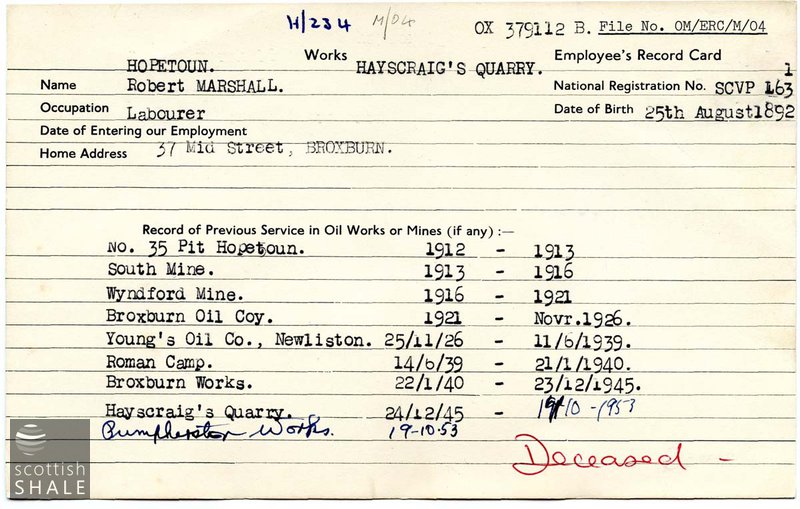 H/234 M/04 OX 379112 B. File No. OM/ERC/M/04
HOPETOUN. Works HAYSCRAIG'S QUARRY. Employee's Record Card 1
Name Robert MARSHALL. National Registration No. SCVP 163
Occupation Labourer Date of Birth 25th August 1892
Date of Entering our Employment
Home Address 37 Mid Street, BROXBURN.
Record of Previous Service in Oil Works or Mines (if any) :—
No. 35 Pit Hopetoun. 1912 - 1913
South Mine. 1913 - 1916
Wyndford Mine. 1916 - 1921
Broxburn Oil Coy. 1921 - Novr.1926.
Young's Oil Co., Newliston. 25/11/26 - 11/6/1939.
Roman Camp. 14/6/39 - 21/1/1940.
Broxburn Works. 22/1/40 - 23/12/1945.
Hayscraig's Quarry. 24/12/45 - 19/10-1953
Pumpherston Works. 19-10-53
Deceased -
scottish
SHALE